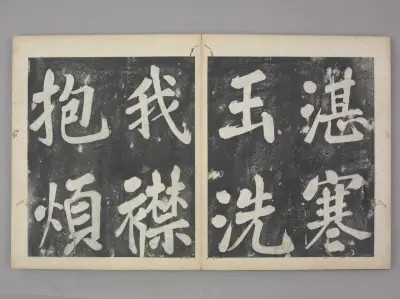 湛寒
玉洗
我襟
抱煩